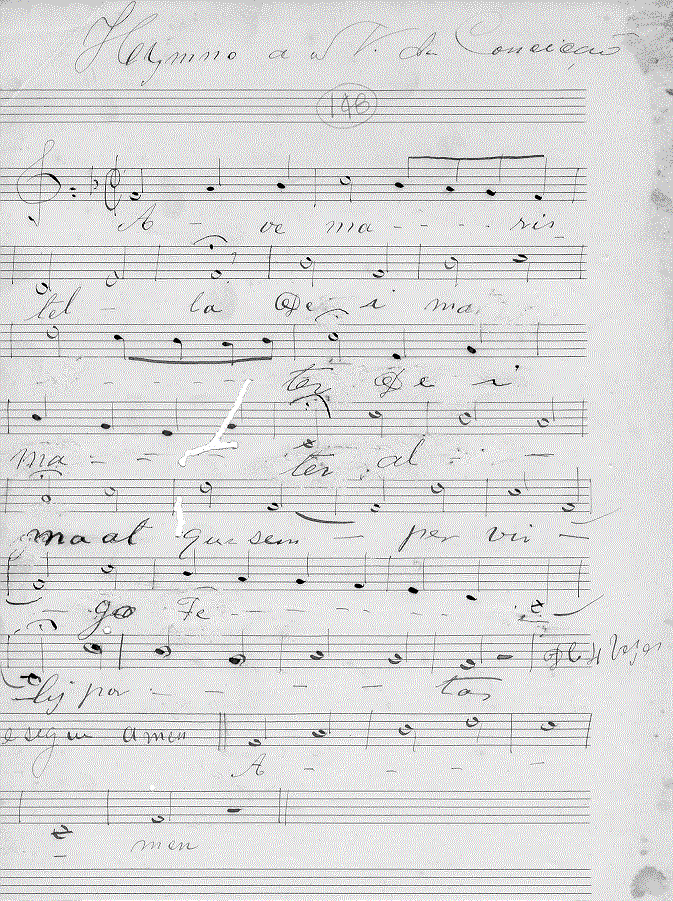 Hymno a N S. da Conceição
146
A - ve ma - - - - ris
tel - la De i ma
- - - - - - - ter De i
ma - - - ter al - - -
ma at que sem - per vir -
- go Fe - - - - - -
lix por - - - - tas
D C 4 vezes
e segue amen A - - - -
- men